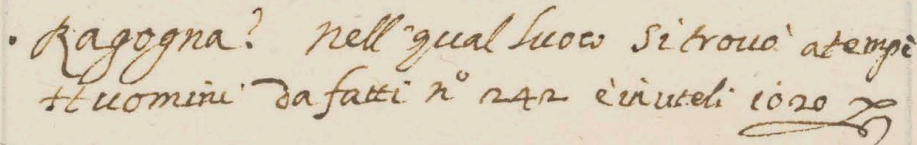 . Ragogna? Nell qual luoco si trouò a tempi
Huomini da fatti n.º 242 è inuteli 1020